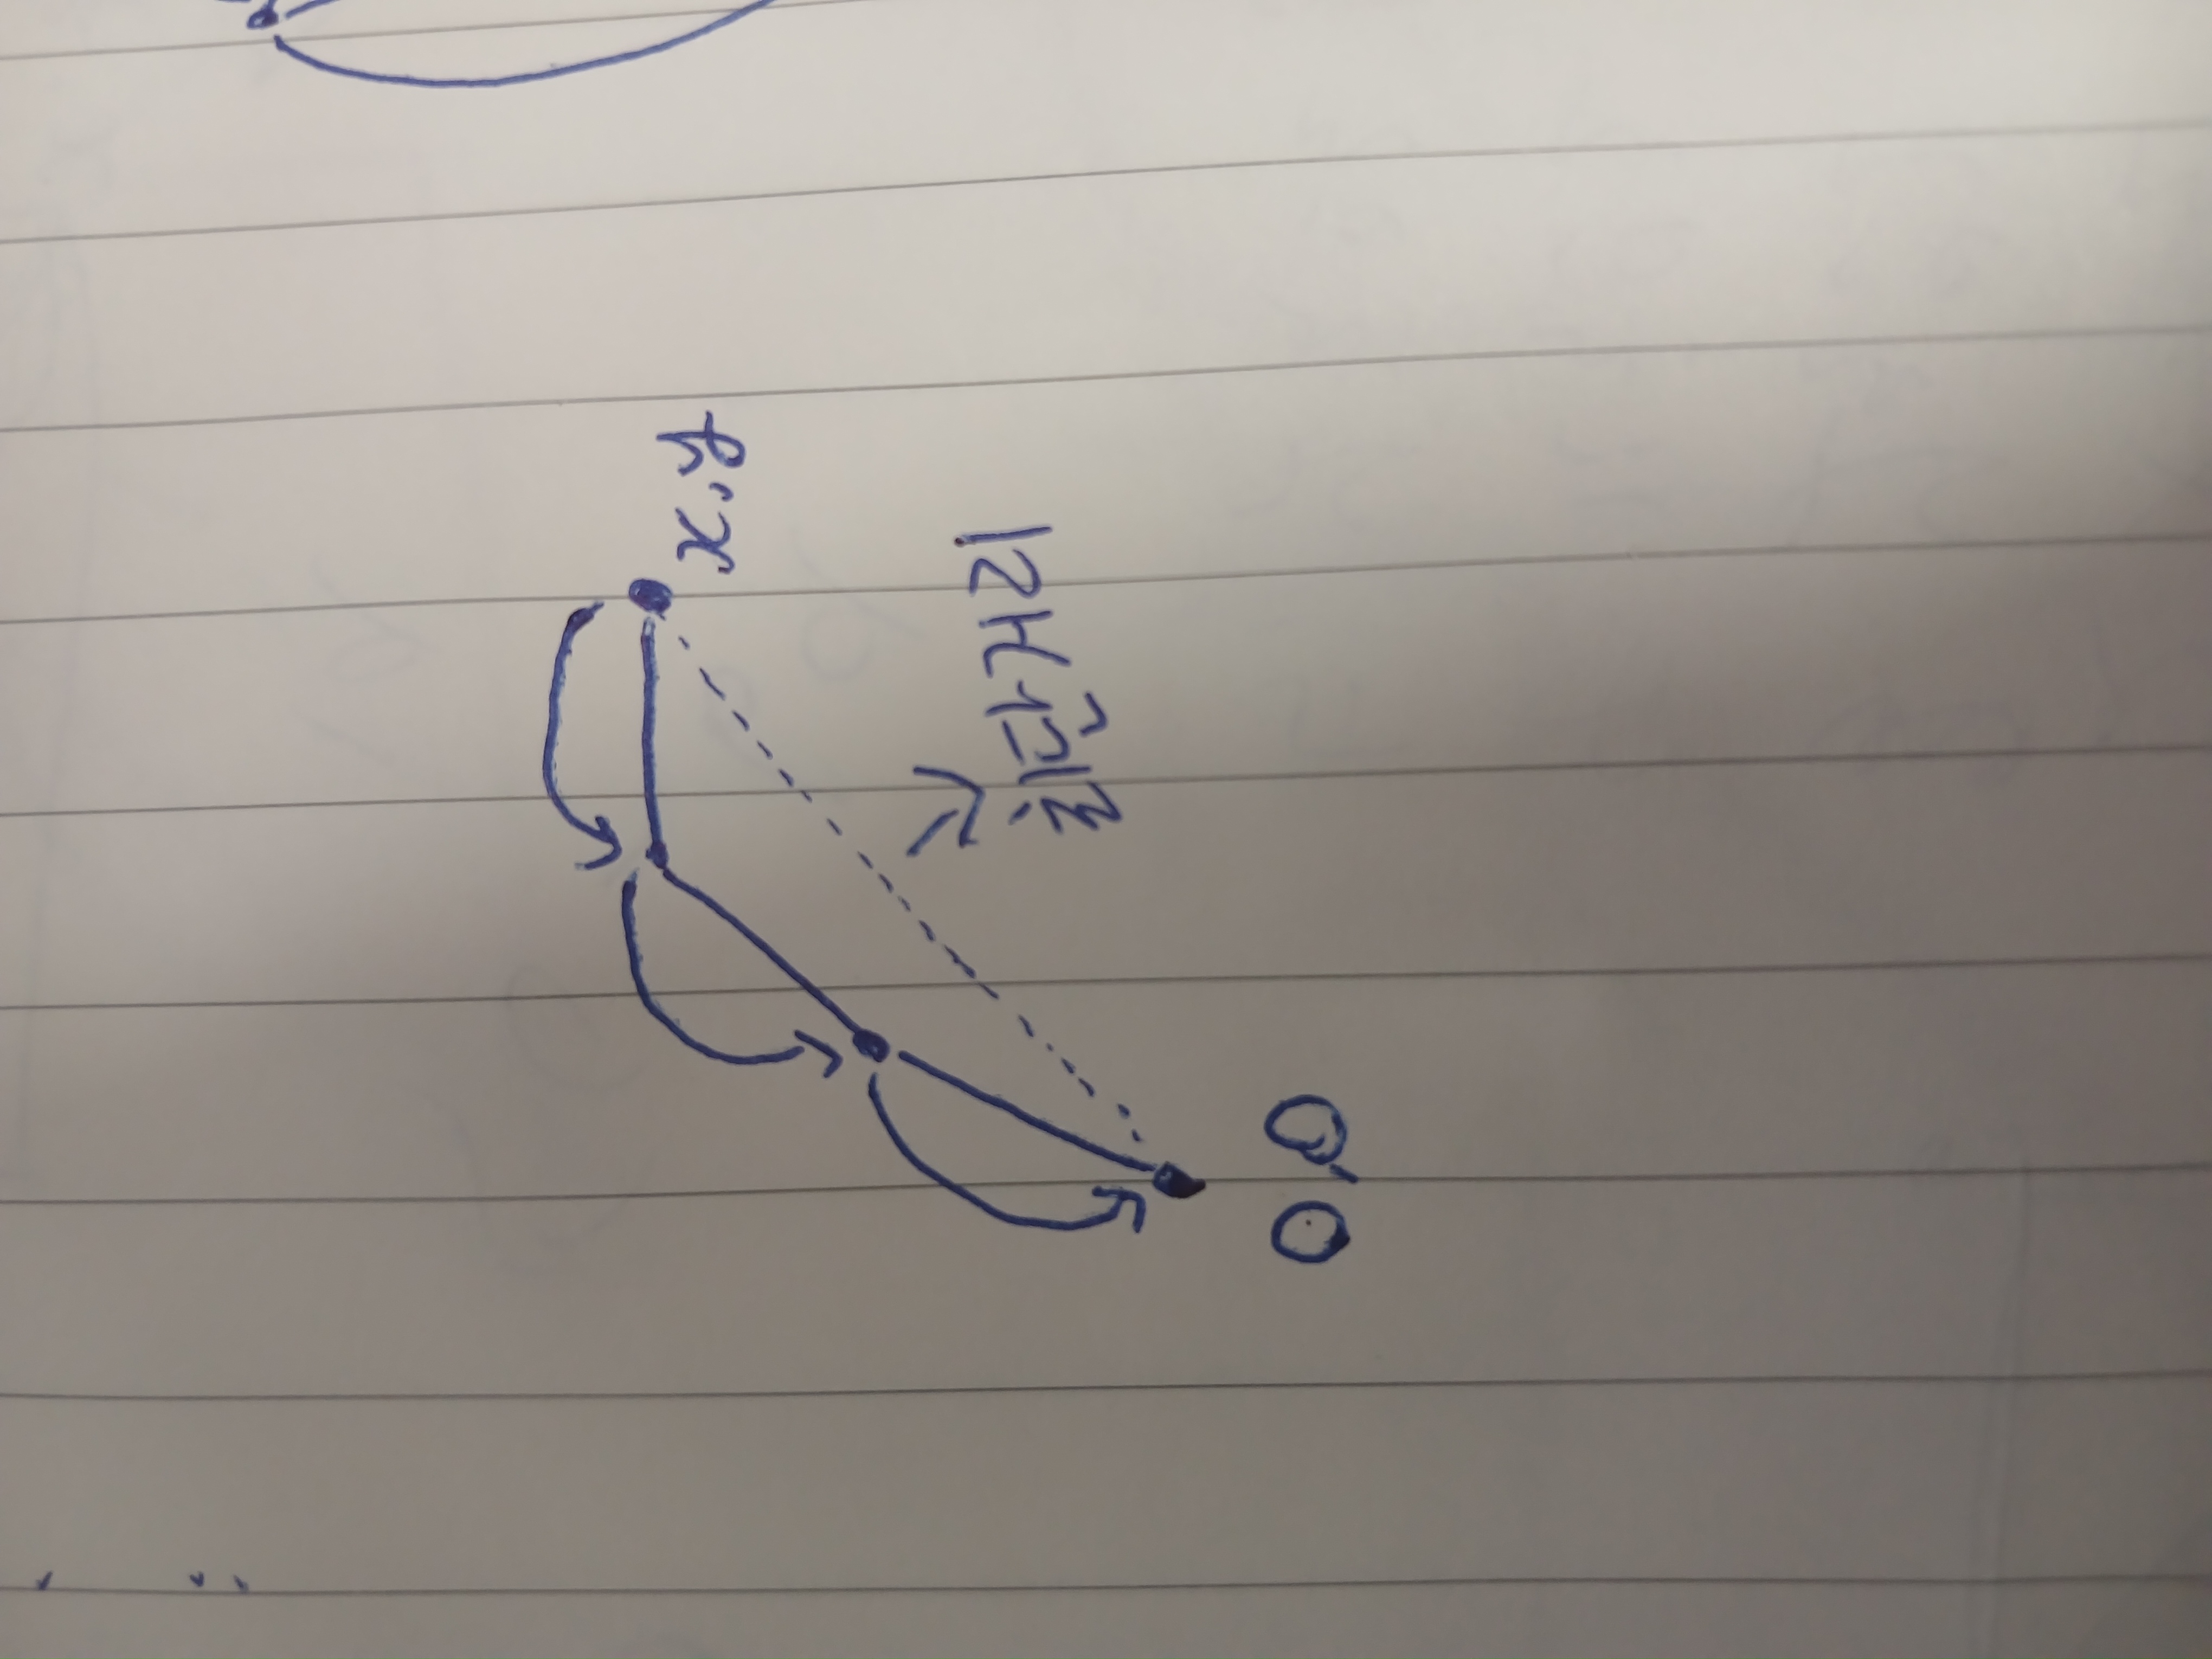 x,y
최단거리
0,0